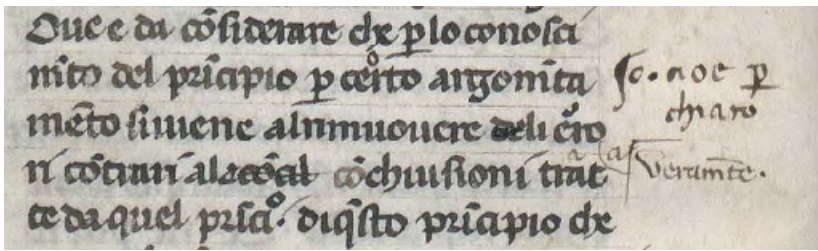 Oue e da cõsiderare che ꝑ lo conosci
mẽto del prĩcipio ꝑ certo argomẽta
mẽto si uiene al rimuouere deli erro
ri cõtrari ala cõchiusioni trat
te da quel prĩci.° di q̃sto prĩcipio che
.so. cioe ꝑ
chiaro
veramẽte.